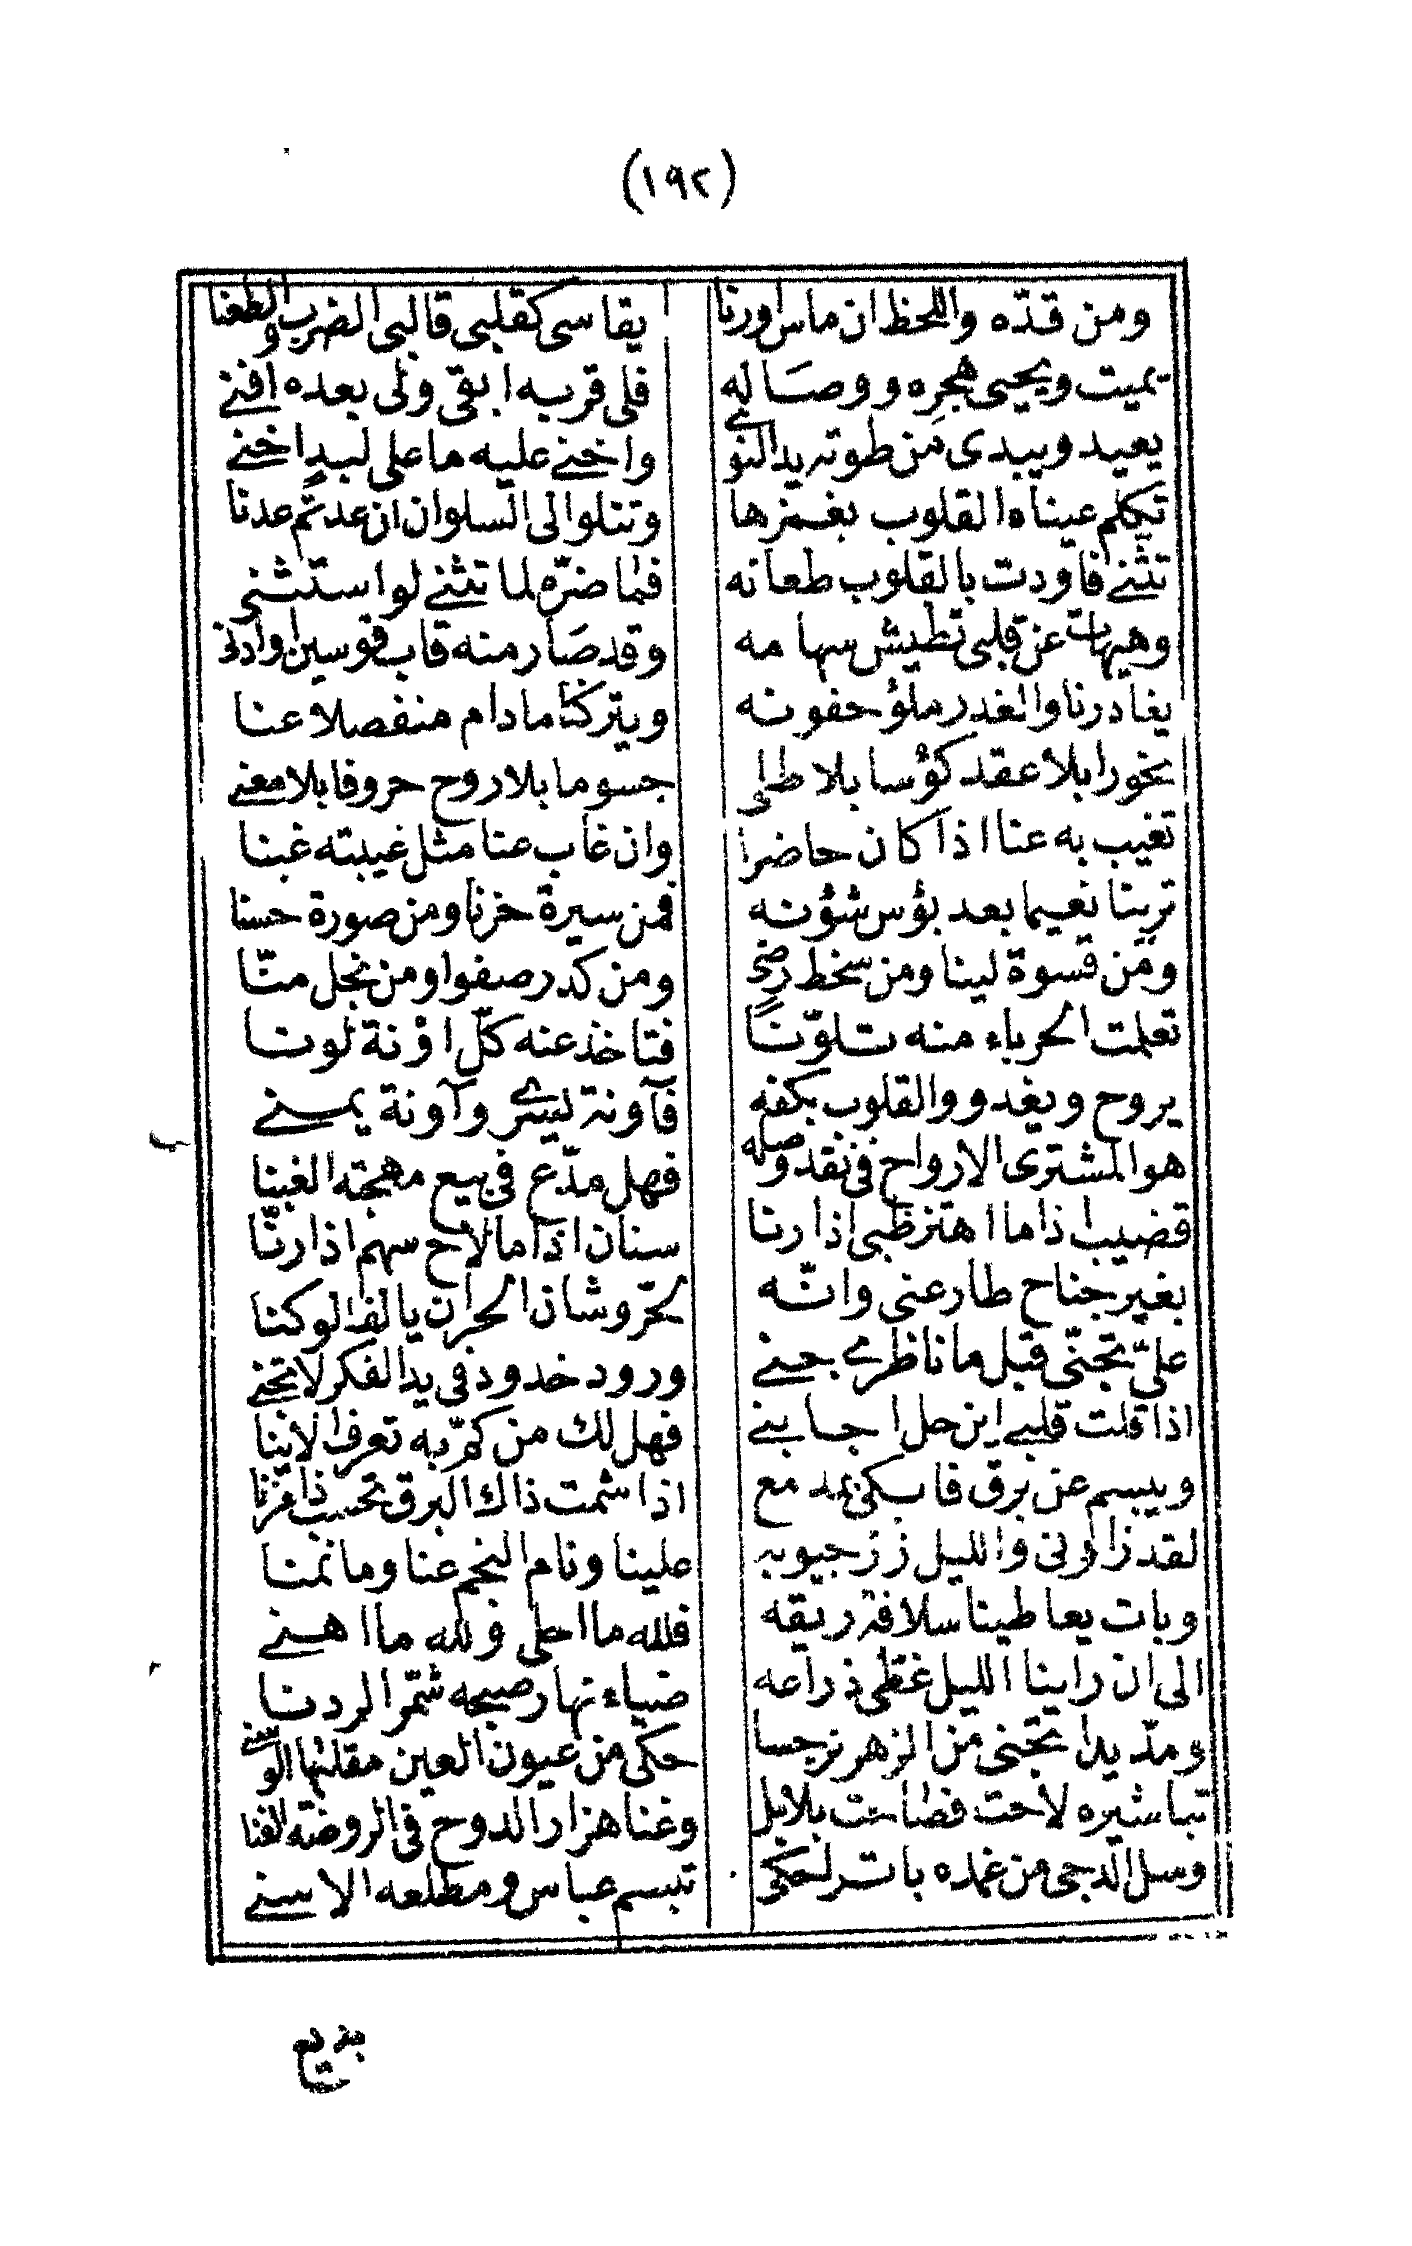 (١٩٢)
ومن قدّه واللحظ ان ماس اورنا يقاسى كقلبى قالبى الضرب والطعنا
يميت ويحيى هجره ووصاله فلى قربه ابقى ولى بعده افنى
يعيد ويبدى من طوته يد النوى واخنى عليه ما على لبد اخنى
تكلم عيناه القلوب بغمزها وتتلوا لى السلوان ان عدتم عدنا
تثنى فاودت بالقلوب طعانه فما ضرّه لما تثنى لو استثنى
وهيهات عن قلبى تطيش سهامه وقد صار منه قاب قوسين او ادنى
يغادرنا والغدر ملؤ جفونه ويتركنا ما دام منفصلا عنا
نخورا بلا عقد كؤسا بلا طلى جسوما بلا روح حروفا بلا معنى
تغيب به عنا اذا كان حاضرا وان غاب عنا مثل غيبته غبنا
ترينا نعيما بعد بؤس شؤنه فمن سيرة حزنا ومن صورة حسنا
ومن قسوة لينا ومن سخط رضى ومن كدر صفوا ومن بخل منّا
تعلمت الحرباء منه تلوّنا فتاخذ عنه كلّ اونة لونا
يروح ويغدو والقلوب بكفه فآونة يسرى وآونة يمنى
هو المشترى الارواح فى نقد وصله فهل مدّع فى بيع مهجته الغبنا
قضيب اذا ما اهتز ظبى اذا رنا سنان اذا ما لاح سهم اذا رنّا
بغير جناح طار عنى وانّه لحرّ وشان الحر ان يالف الوكنا
علىّ تجنّى قبل ما ناظرى جنى ورود خدود فى يد الفكر لا تجنى
اذا قلت قلبى اين حل اجابنى فهل لك من كرّ به تعرف الاينا
ويبسم عن برق فابكى بمدمع اذا شمت ذاك البرق تحسب ذا مزنا
لقد زارنى والليل زرّ جيوبه علينا ونام النجم عنا وما نمنا
وبات يعاطينا سلافة ريقه فلله ما احلى ولله ما اهنى
الى ان راينا الليل غطى ذراعه ضياء نهار صبحه شمّر الردنا
ومدّ يدا تجنى من الزهر نرجسا حكى من عيون العين مقلتها الوسنى
تباشيره لاحت فصاحت بلابل وغنا هزار الدوح فى الروضة الغنا
وسل الدجى من غمده باترا حكى تبسم عباس ومطلعه الاسنى